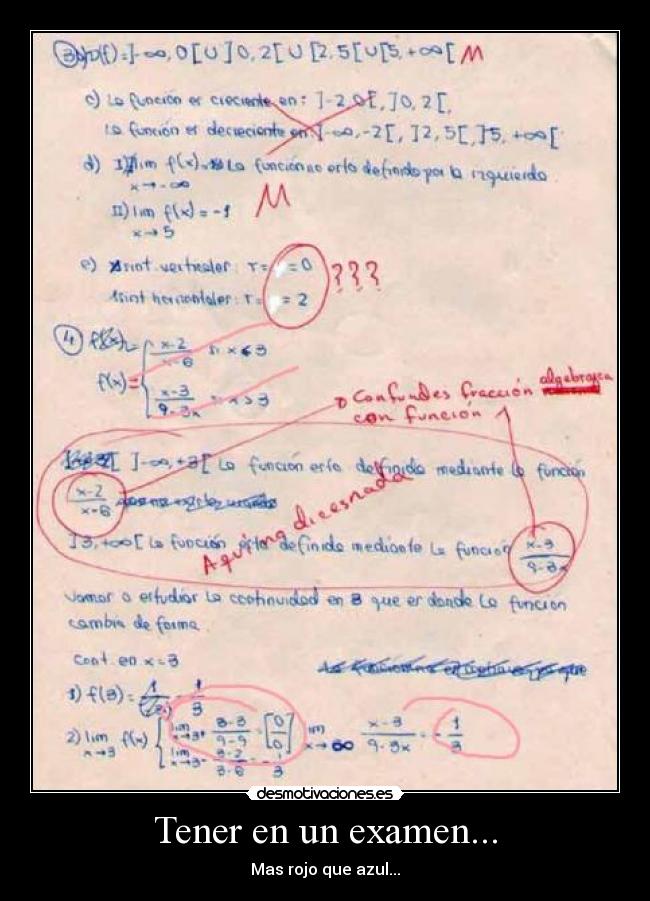 3 b) D(f)=]-∞,0[U]0,2[U[2,5[U[5,+∞[ M
c) La función es creciente en: ]-2,0[, ]0,2[,
La función es decreciente en ]-∞,-2[, ]2,5[, ]5,+∞[
d) I) lim f(x) La función no esta definida por la izquierda.
x→-∞
M
II) lim f(x) = -1
x→5
e) Asint. verticales: r= =0
???
Asint horizontales: r= =2
4 f(x)=
x-2
x-6
si x<3
f(x)=
x-3
9-3x
x>3
Confundes fracción algebraica
con función
]-∞,+3[ La función esta definida mediante la función
x-2
x-6
Aquí no dices nada
]3,+∞[ La función esta definida mediante la función
x-3
9-3x
Vamos a estudiar la continuidad en 3 que es donde la función
cambia de forma.
Cont. en x=3
1) f(3)=
1
3
2) lim f(x)
x→3
lim x→3+ 3-3 / 9-9 = [0/0] lim x→∞ x-3 / 9-3x = - 1/3
lim x→3- 3-2 / 3-6 - 1/3
desmotivaciones.es
Tener en un examen...
Mas rojo que azul...